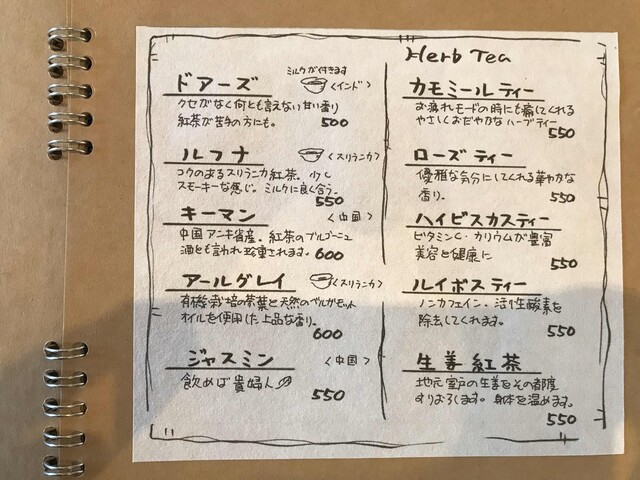 ミルクが付きます
ドアーズ <インド>
クセがなく何とも言えない甘い香り
紅茶が苦手の方にも。 500
ルフナ <スリランカ>
コクのあるスリランカ紅茶。少し
スモーキーな感じ。ミルクに良く合う。
550
キーマン <中国>
中国アンキ省産。紅茶のブルゴーニュ
酒とも言われ珍重されます。 600
アールグレイ <スリランカ>
有機栽培の茶葉と天然のベルガモット
オイルを使用した上品な香り。
600
ジャスミン <中国>
飲めば貴婦人
550
Herb Tea
カモミールティー
お疲れモードの時にも癒してくれる
やさしくおだやかなハーブティー
550
ローズティー
優雅な気分にしてくれる華やかな
香り。 550
ハイビスカスティー
ビタミンC・カリウムが豊富
美容と健康に
550
ルイボスティー
ノンカフェイン・活性酸素を
除去してくれます。
550
生姜紅茶
地元室戸の生姜をその都度
すりおろします。身体を温めます。
550